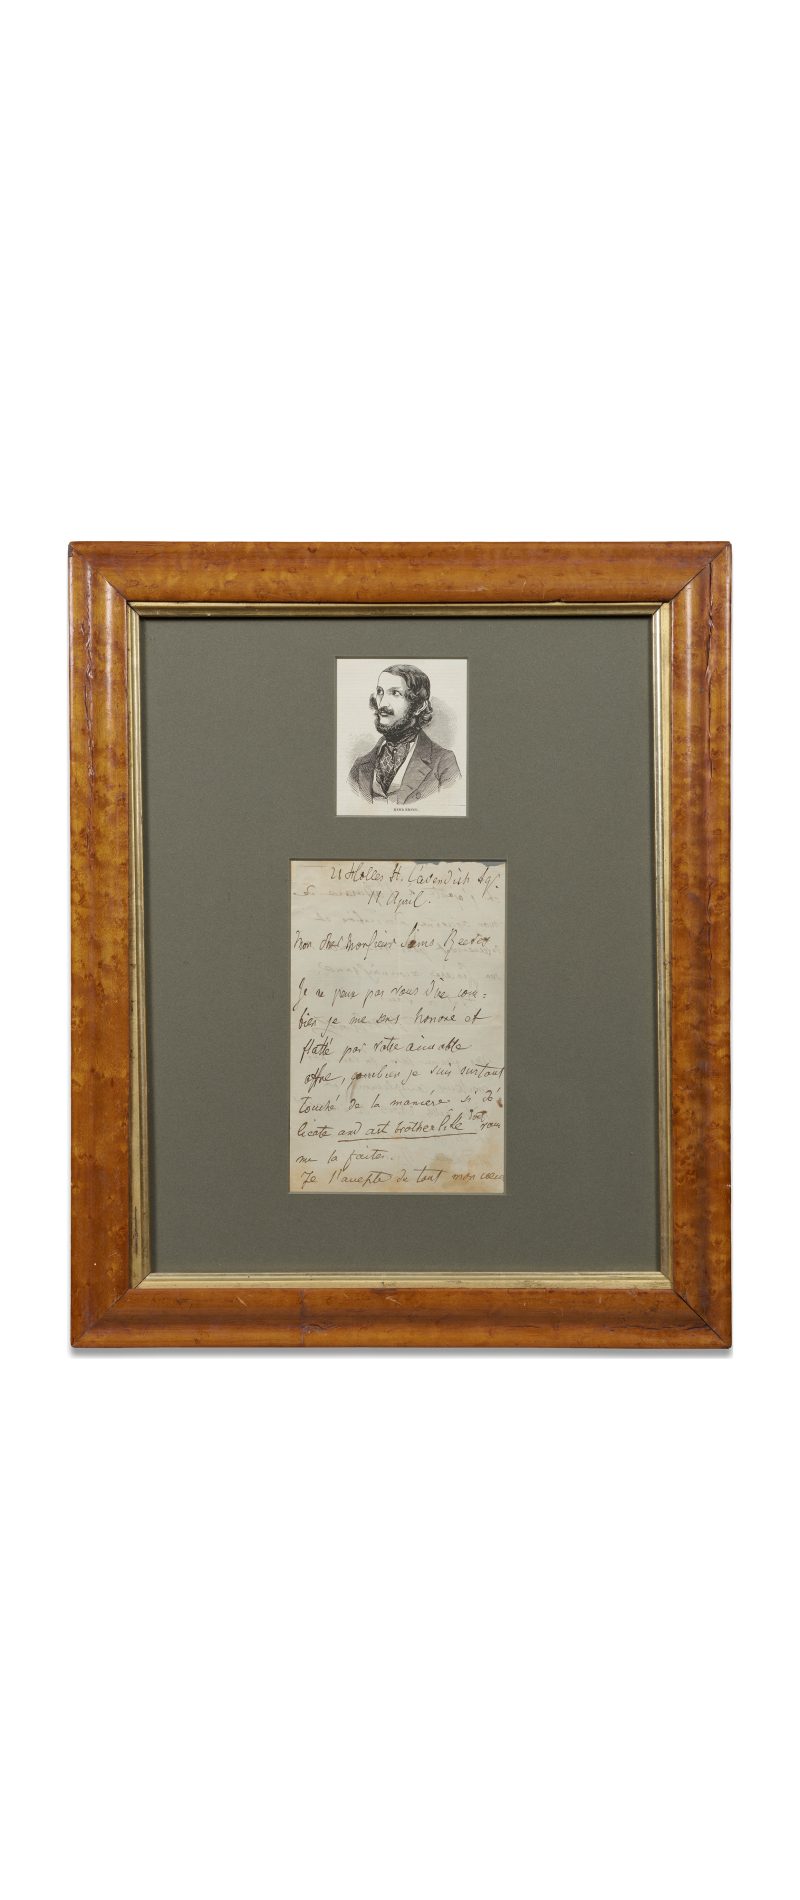 HERR ERNST.
21 Holles St. Cavendish Sqr.
11 April.
Mon cher Monsieur Sims Reeves
Je ne peux pas vous dire com=
bien je me sens honoré et
flatté par votre aimable
offre, combien je suis surtout
touché de la manière si dé
licate and art brotherlike dont vous
me la faites.
Je l'accepte de tout mon cœur